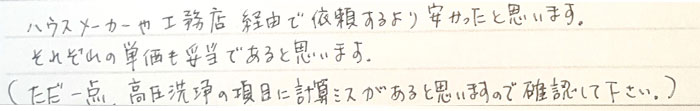 ハウスメーカーや工務店 経由で依頼するより安かったと思います。
それぞれの単価も妥当であると思います.
(ただ一点、高圧洗浄の項目に計算ミスがあると思いますので確認して下さい。)